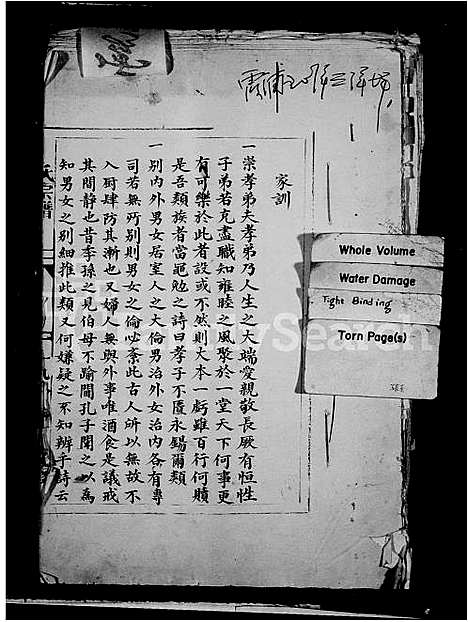 家訓
一崇孝弟夫孝弟乃人生之大端愛親敬長厥有恒性
子弟若克盡職知雍睦之風聚於一堂天下何事更
有可樂於此者設或不然則大本一虧雖百行何贖
是吾類族者當軛勉之詩曰孝子不匱永錫爾類
一別内外男女居室人之大倫男治外女治内各有專
司若無所别則男女之倫必紊此古人所以無故不
入厨肆防其漸也又婦人無與外事唯酒食是議戒
其間靜也昔季孫之見伯母不踰閫孔子聞之以為
知男女之别細推此類又何嫌疑之不知辨乎詩云
氏宗譜
Whole Volume
Water Damage
Tight Binding
Torn Page(s)
FamilySearch